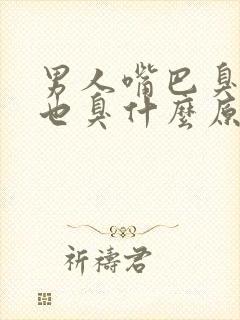 男人嘴巴臭
也臭什麼原
祈禱君